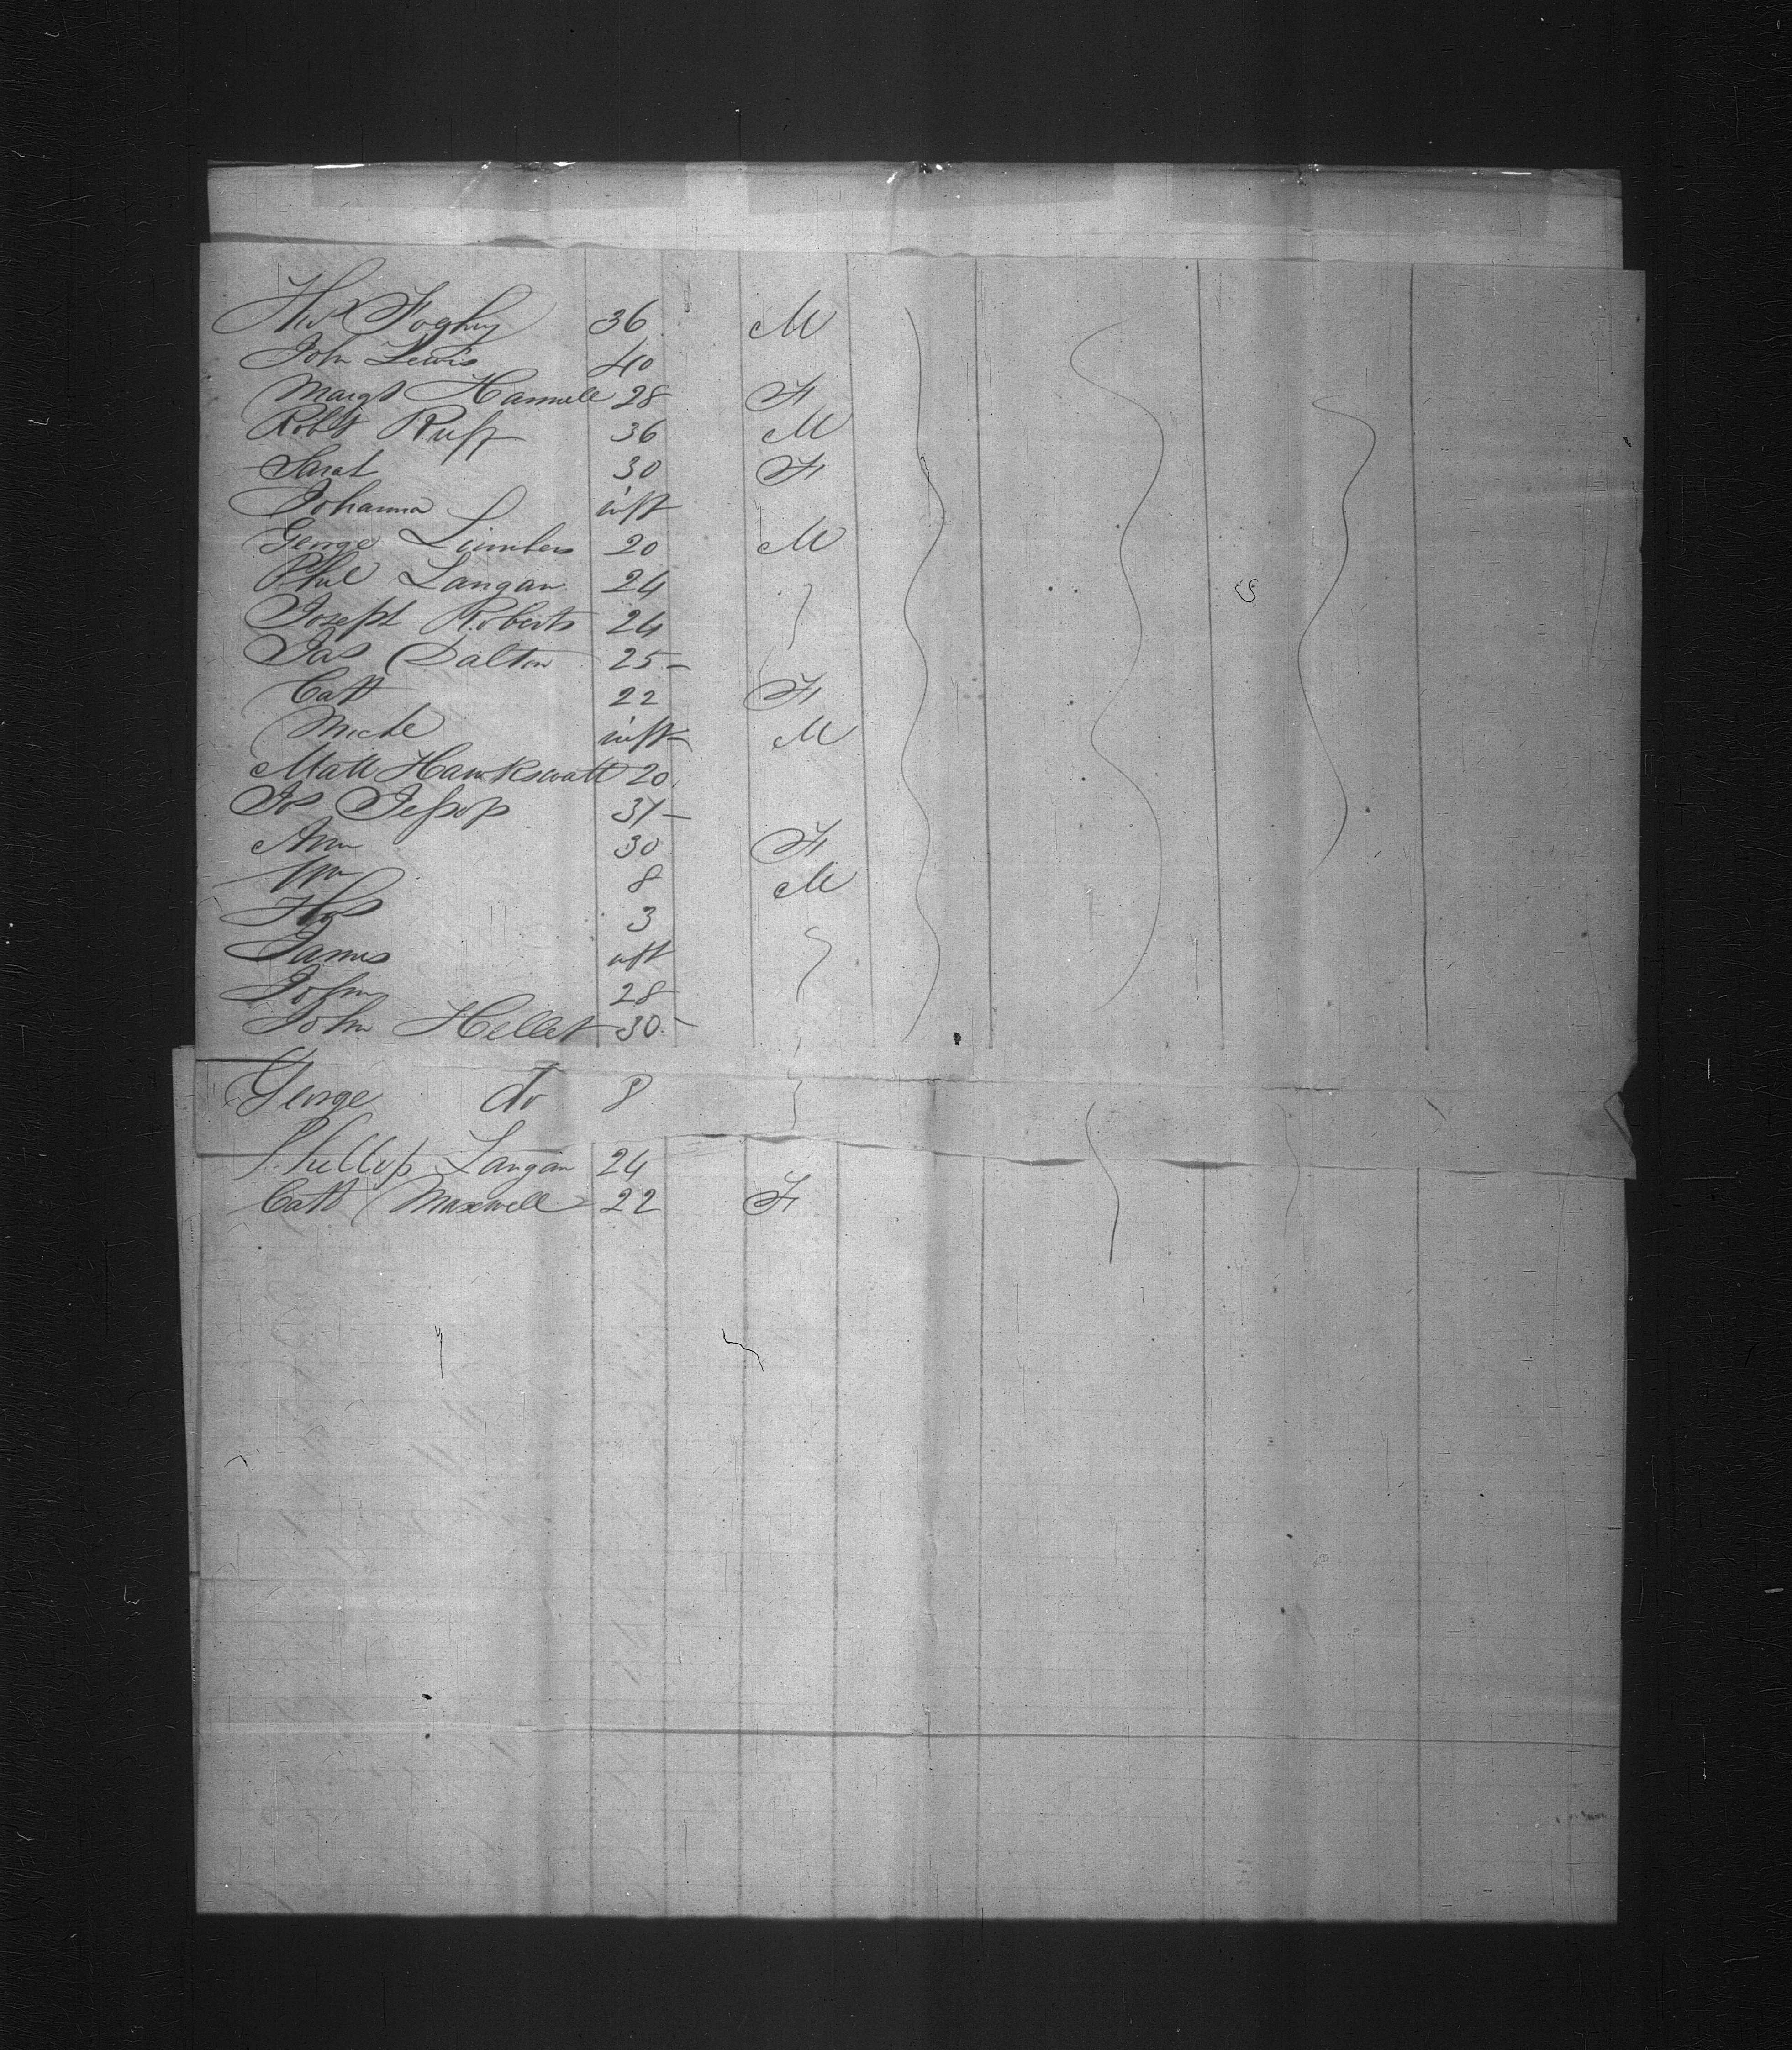 Thos Foghy 36 M
John Lewis 40
Margt Hammell 28 F
Robt Ruff 36 M
Sarah 30 F
Johanna inft
George Limbers 20 M
Phil Langan 24
Joseph Roberts 24
Jas Dalton 25
Cath 22 F
Michl inft M
Matt Hawkswatt 20
Js Jessop 31
Ann 30 F
Wm 8 M
Thos 3
James inft
John 28
John Hellet 30
George do 8
Phillip Langan 24
Cath Maxwell 22 F